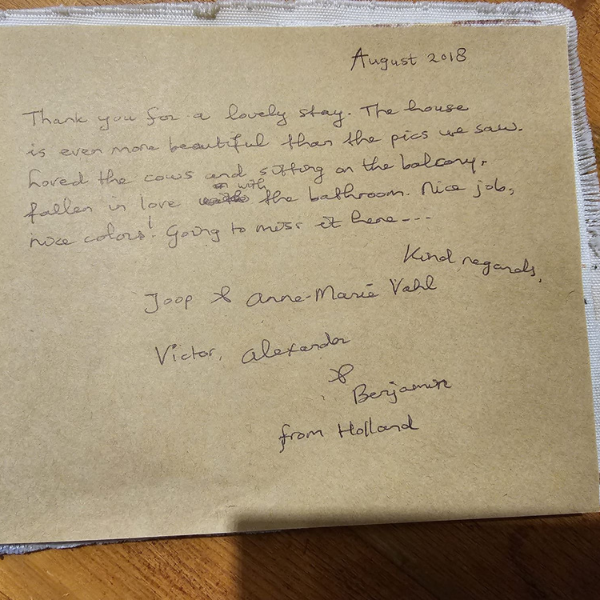 August 2018
Thank you for a lovely stay. The house
is even more beautiful than the pics we saw.
Loved the cows and sitting on the balcony,
fallen in love with the bathroom. Nice job,
nice colors! Going to miss it here---
Kind regards,
Joop & Anne-Marie Vahl
Victor, Alexander
&
Benjamin
from Holland